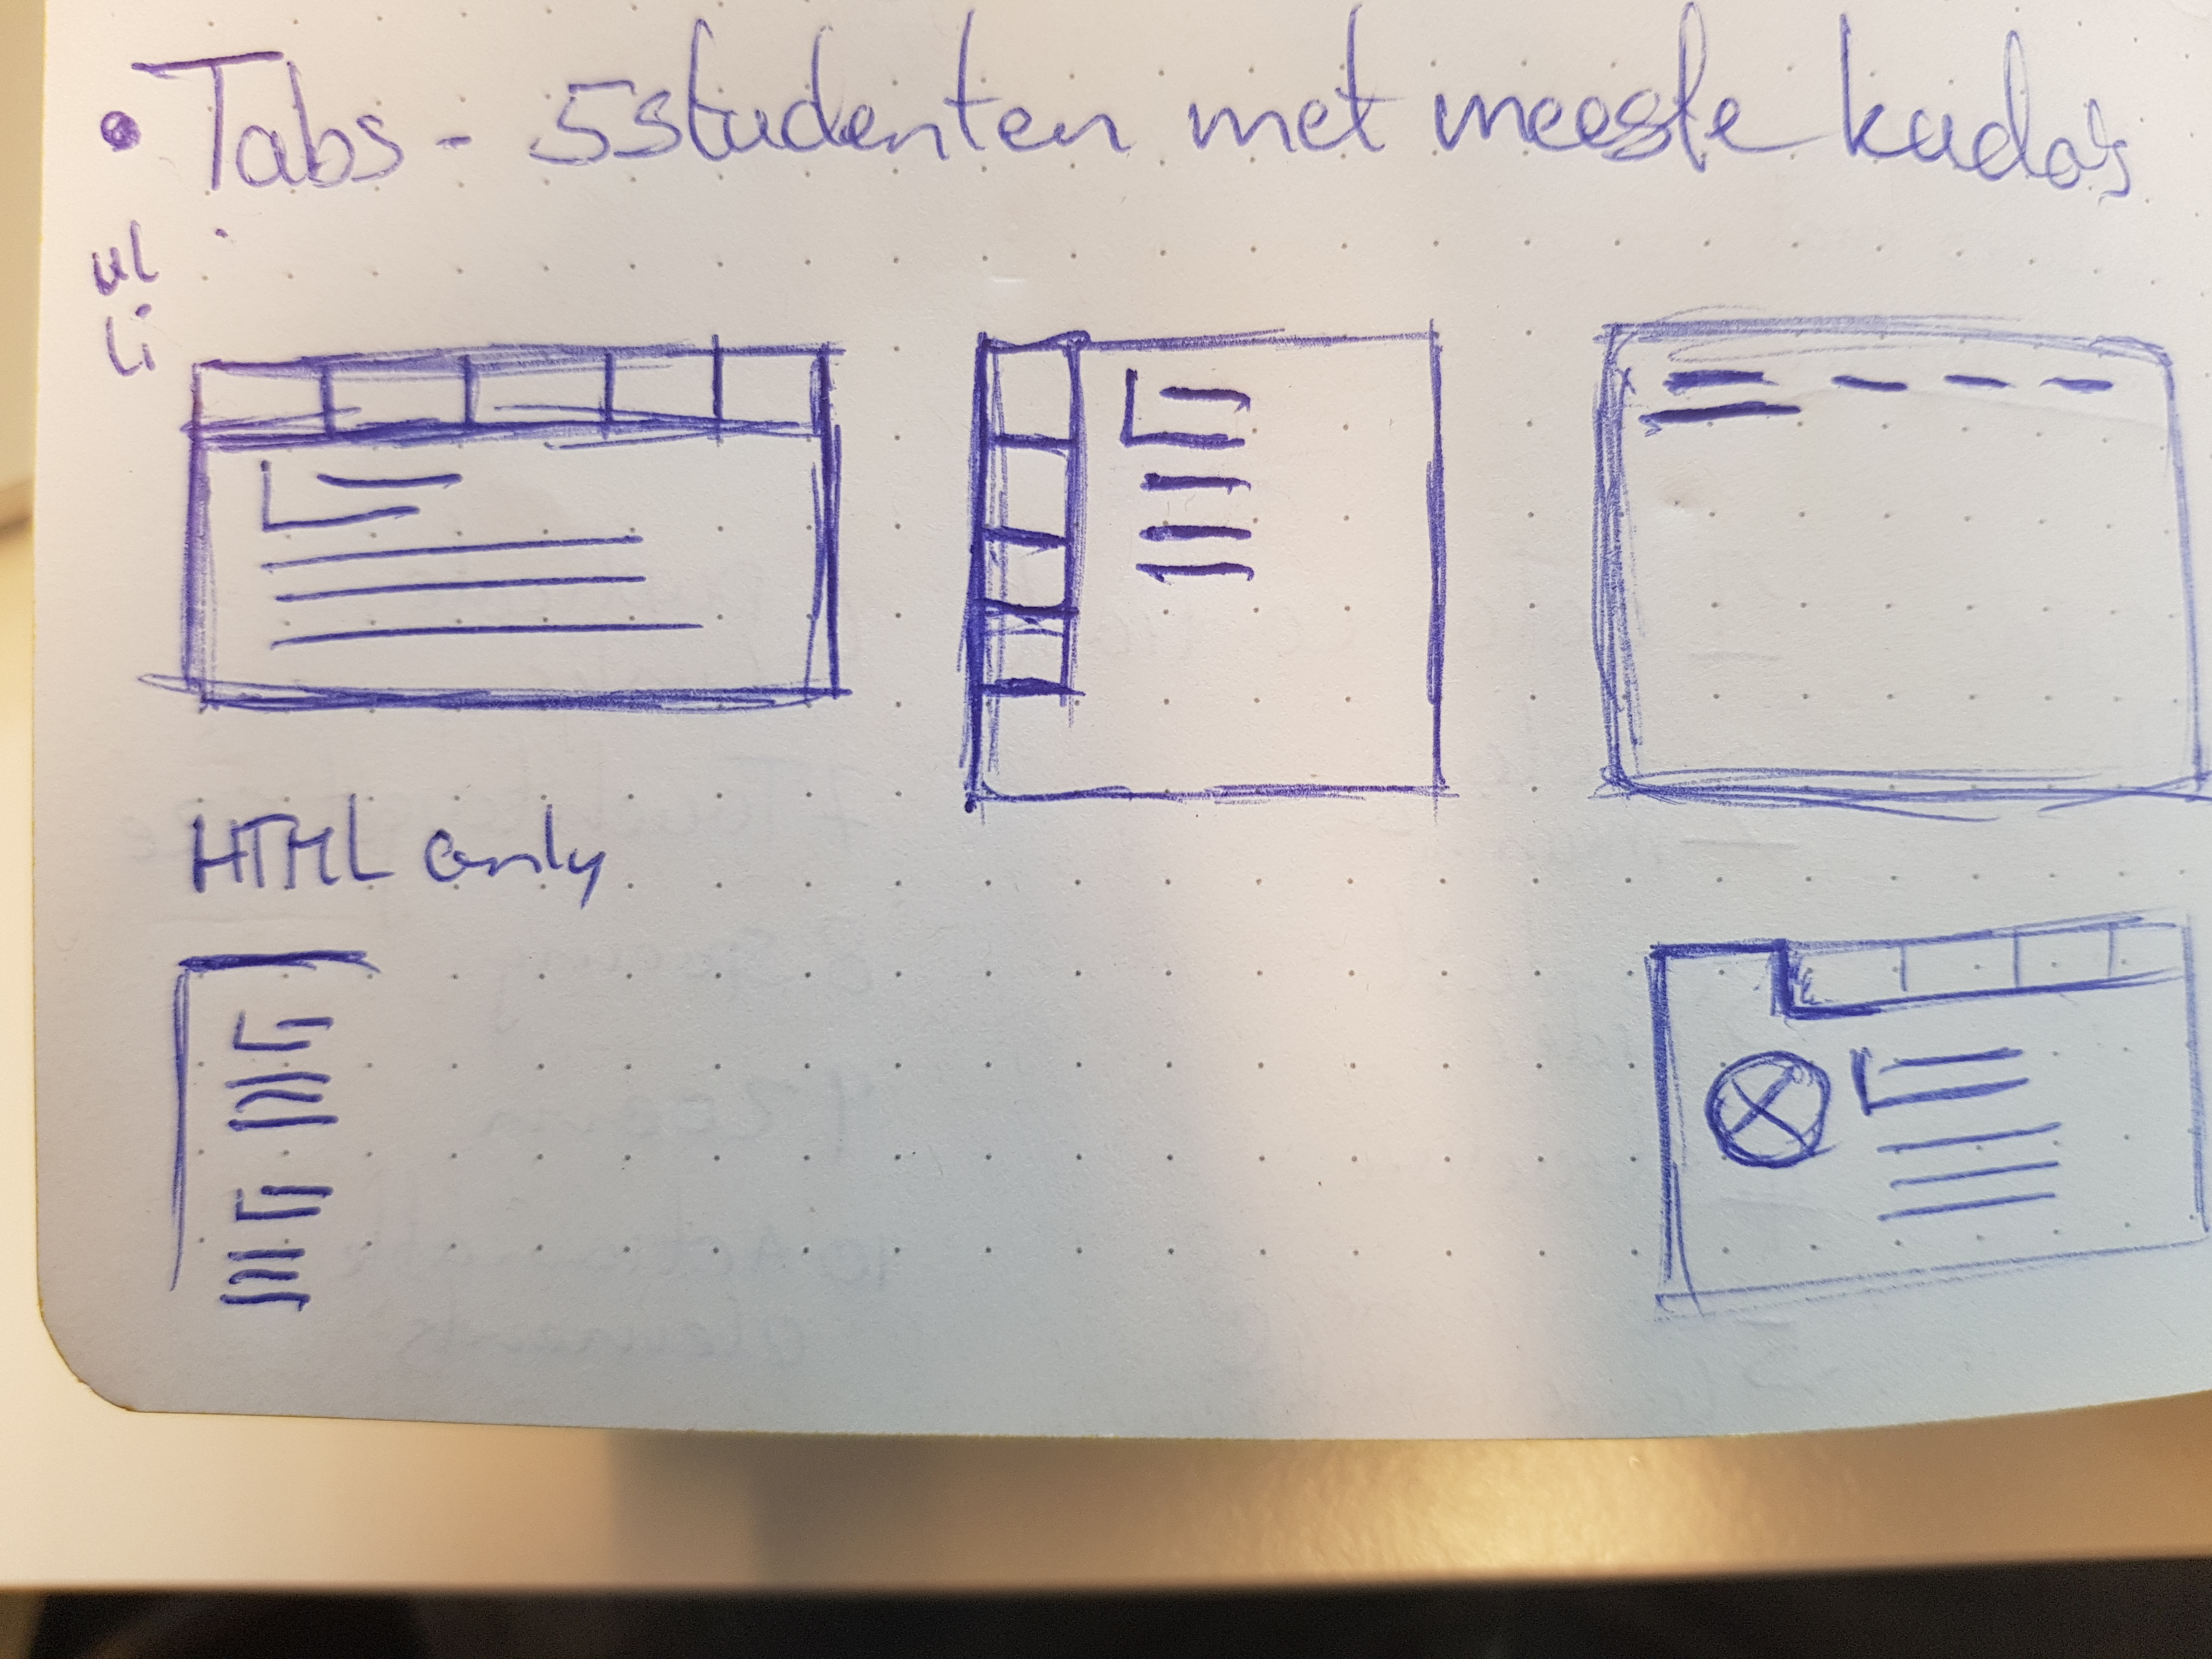 • Tabs - 5 studenten met meeste kudo's
ul
li
HTML only